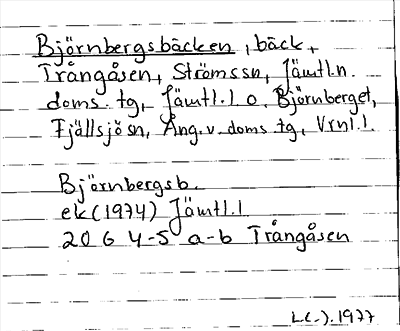 Björnbergsbäcken, bäck,
Trångåsen, Strömssn, Jämtl.n.
doms. tg, Jämtl.l o. Björnberget,
Fjällsjösn, Ång.v. doms tg, Vrnl.l.
Björnbergsb.
ek (1974) Jämtl.l
20 G 4-5 a-b Trångåsen
1977